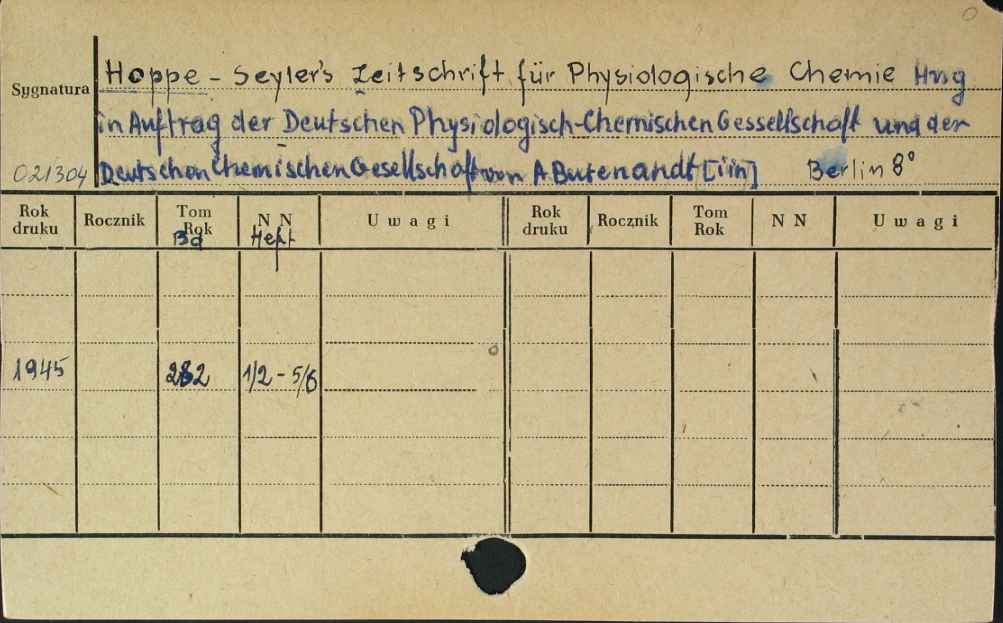 Hoppe - Seyler's Zeitschrift für Physiologische Chemie Hrsg
Sygnatura
in Auftrag der Deutschen Physiologisch-Chemischen Gessellschaft und der
021304 Deutschen Chemischen Gesellschaft von A Butenandt [i in] Berlin 8°
Rok druku Rocznik Tom Rok N N U w a g i Rok druku Rocznik Tom Rok N N U w a g i
Bd Heft
1945 282 1/2 - 5/6